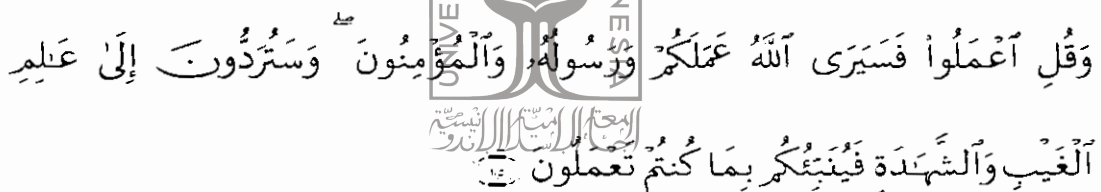 وَقُلِ ٱعْمَلُوا۟ فَسَيَرَى ٱللَّهُ عَمَلَكُمْ وَرَسُولُهُۥ وَٱلْمُؤْمِنُونَ ۖ وَسَتُرَدُّونَ إِلَىٰ عَـٰلِمِ
ٱلْغَيْبِ وَٱلشَّهَـٰدَةِ فَيُنَبِّئُكُم بِمَا كُنتُمْ تَعْمَلُونَ